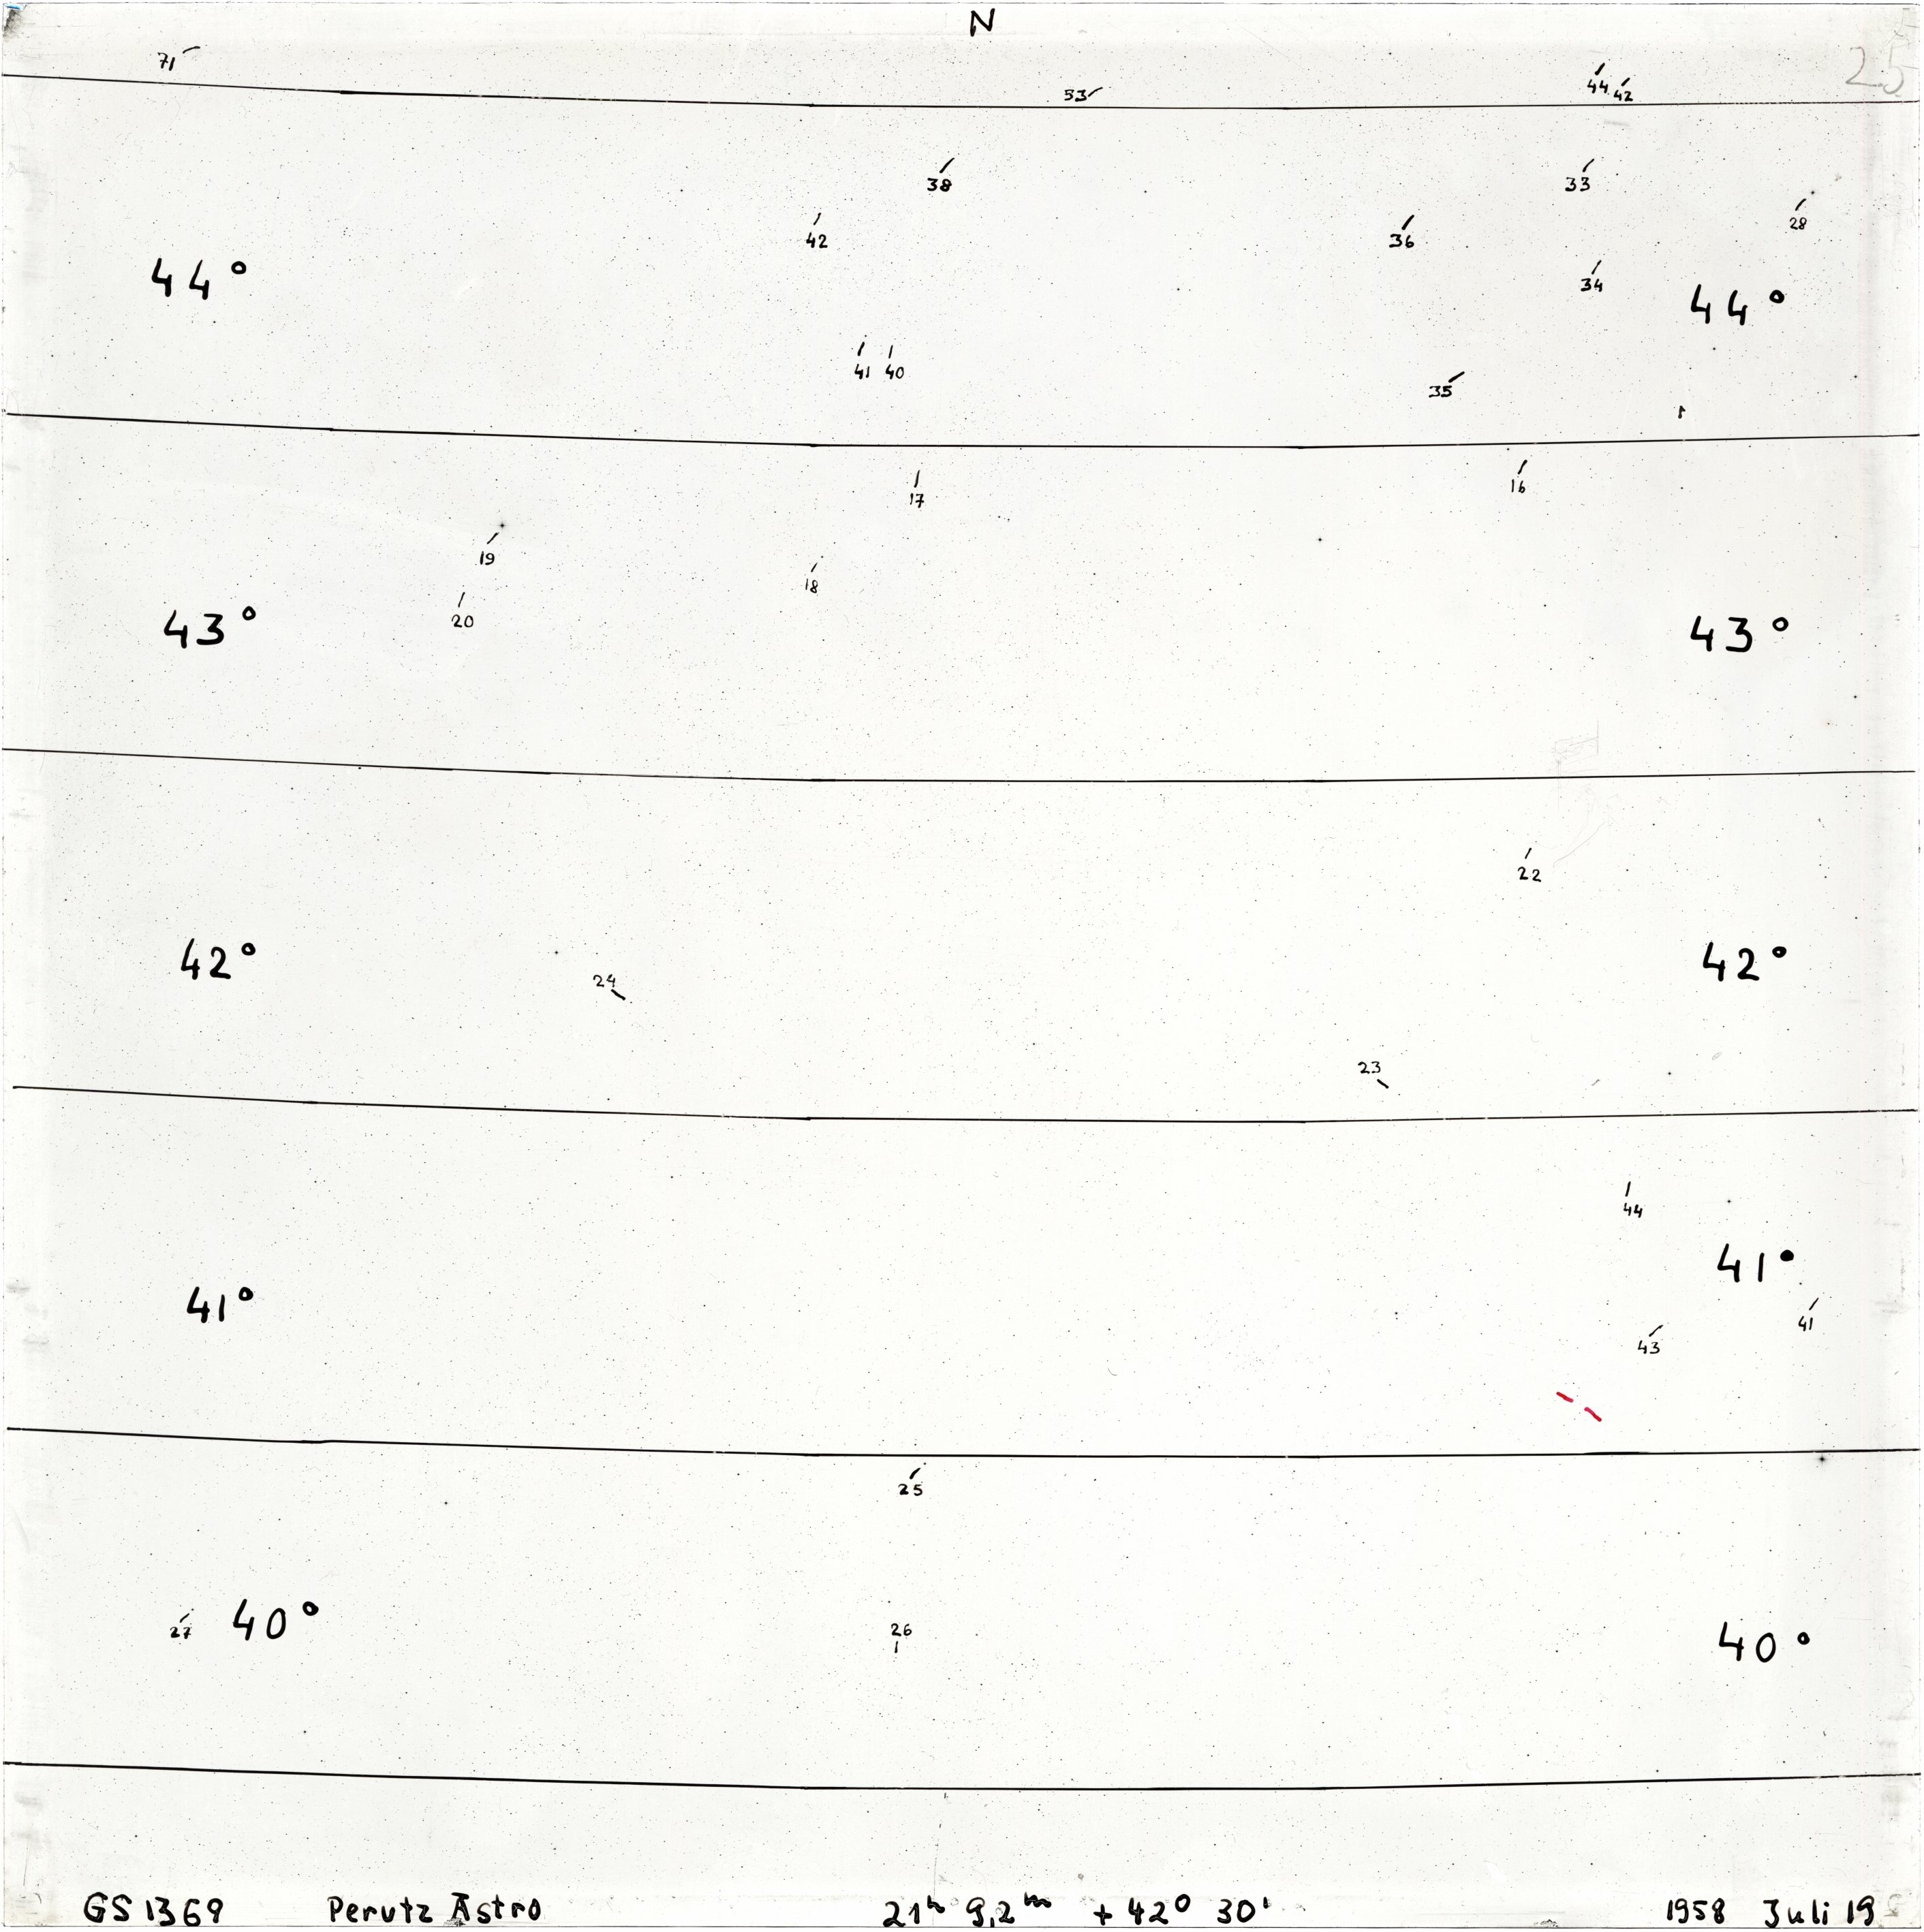 N
25
71
53
44 42
38
33
28
42
36
34
44°
44°
41 40
35
17
16
19
18
20
43°
43°
22
42°
42°
24
23
44
41°
41
41°
43
25
27
40°
26
40°
GS 1369 Perutz Astro 21h 9,2m + 42° 30' 1958 Juli 19